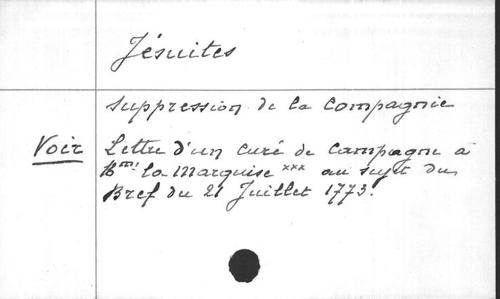 Jésuites
suppression de la Compagnie
Voir Lettre d'un curé de Campagne à
la Marquise xxx au sujet du
Bref du 21 Juillet 1773.